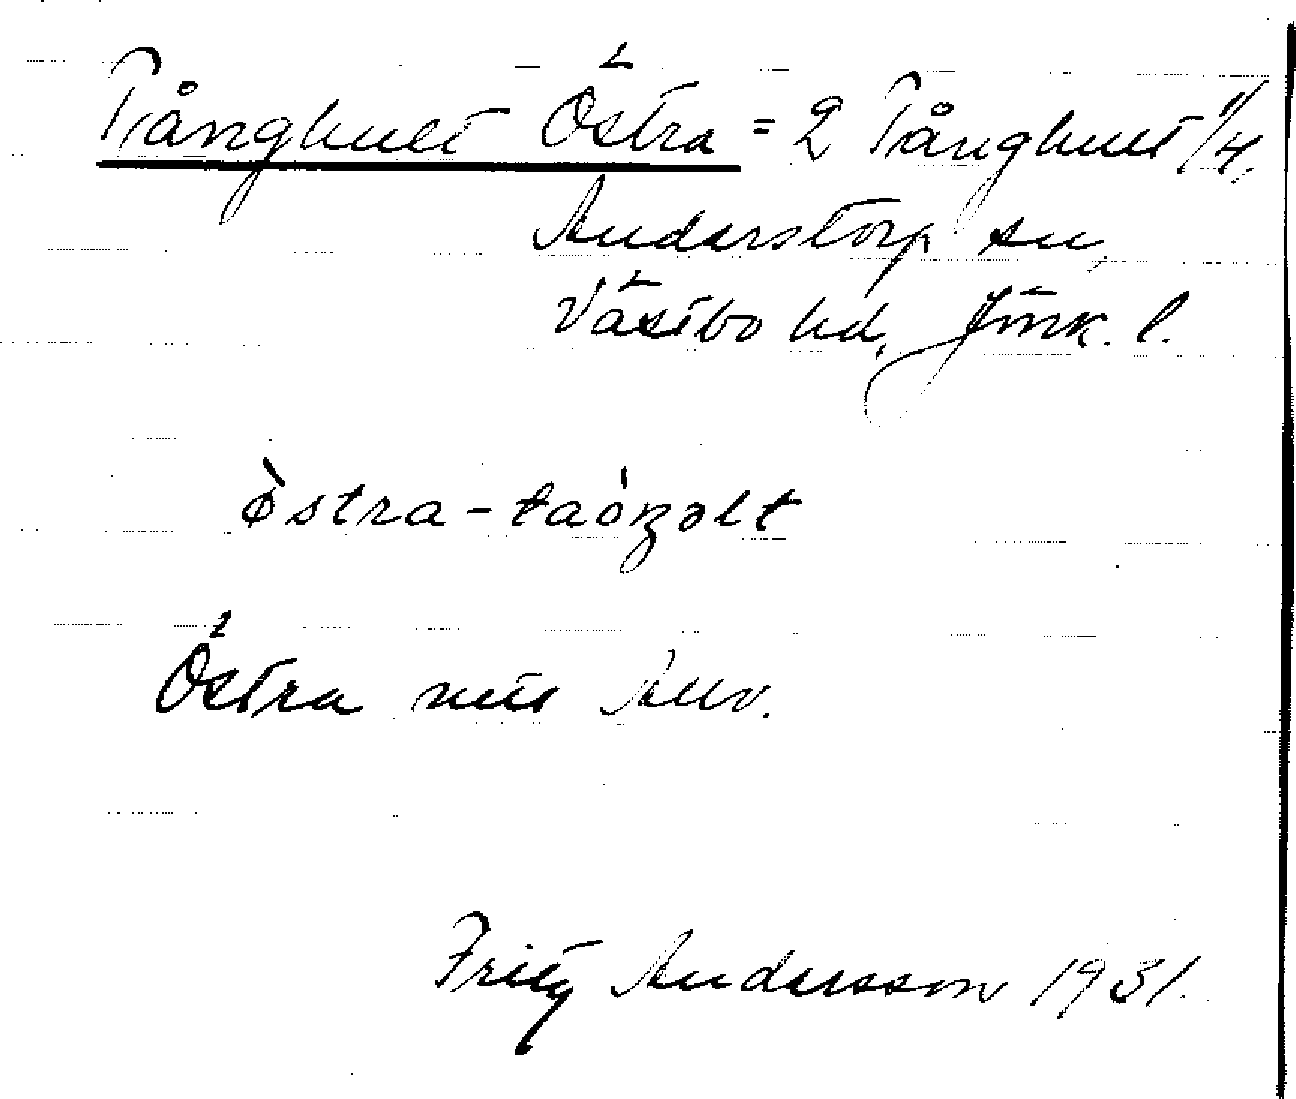 Tånghult Östra = 2 Tånghult 1/4,
Anderstorp sn,
Västbo hd, Jönk. l.
östra-taóŋəlt
Östra nut. Anv.
Fritz Andersson 1931.